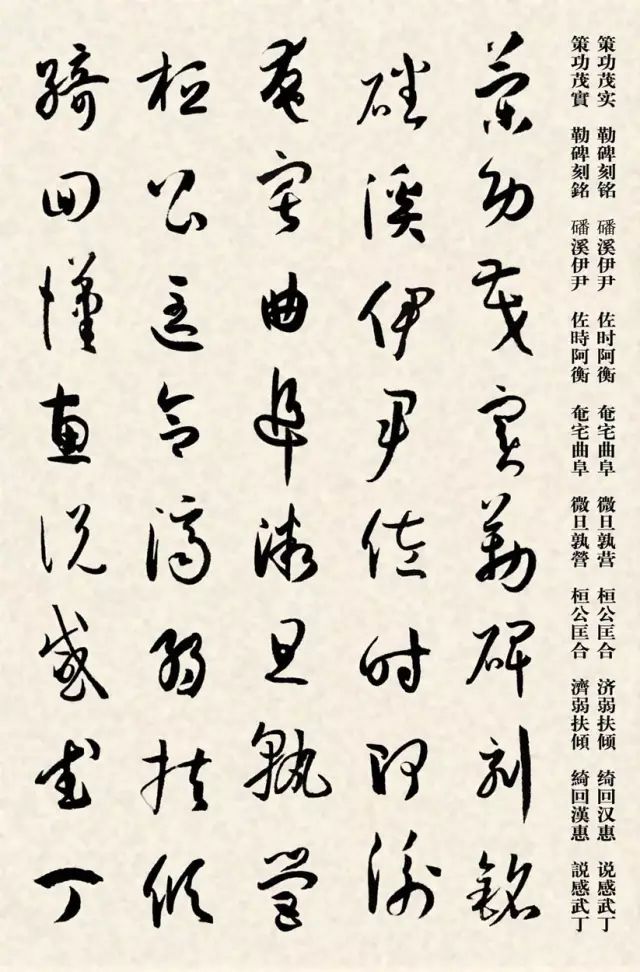 策功茂实 勒碑刻铭 磻溪伊尹 佐时阿衡 奄宅曲阜 微旦孰营 桓公匡合 济弱扶倾 绮回汉惠 说感武丁
策功茂實 勒碑刻銘 磻溪伊尹 佐時阿衡 奄宅曲阜 微旦孰營 桓公匡合 濟弱扶傾 綺回漢惠 說感武丁
策功茂實勒碑刻銘
磻溪伊尹佐時阿衡
奄宅曲阜微旦孰營
桓公匡合濟弱扶傾
綺回漢惠說感武丁